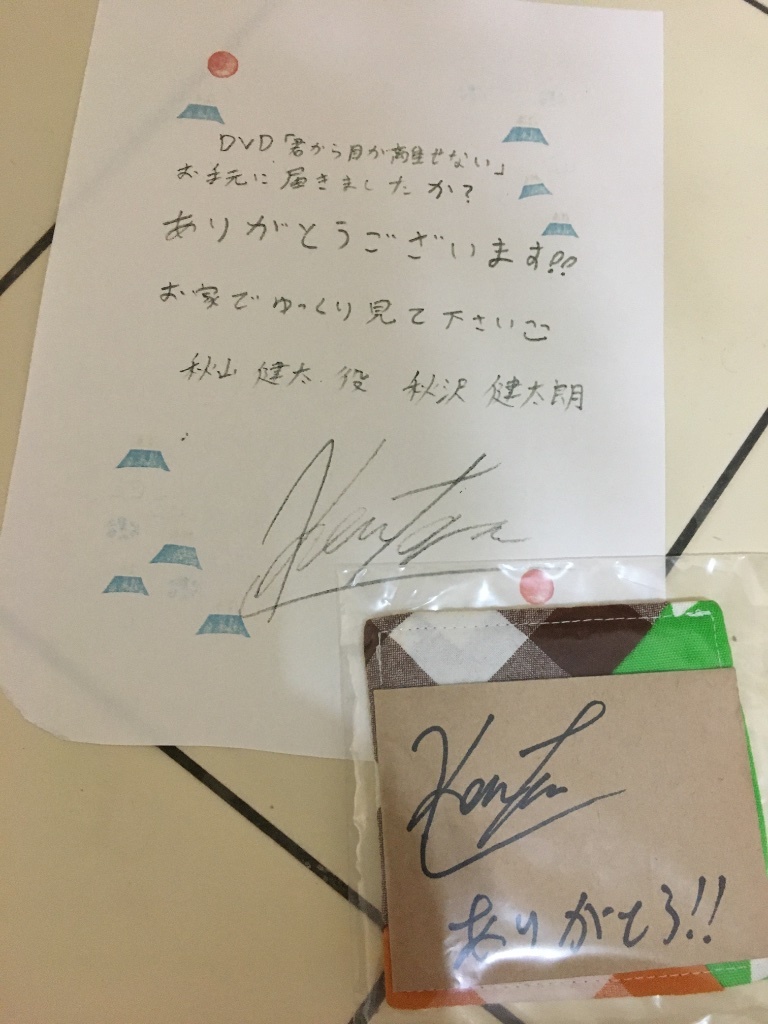 DVD「君から目が離せない」
お手元に届きましたか?
ありがとうございます!!
お家でゆっくり見て下さい
秋山 健太 役 秋沢 健太朗
Kenta
Kenta
ありがとう!!